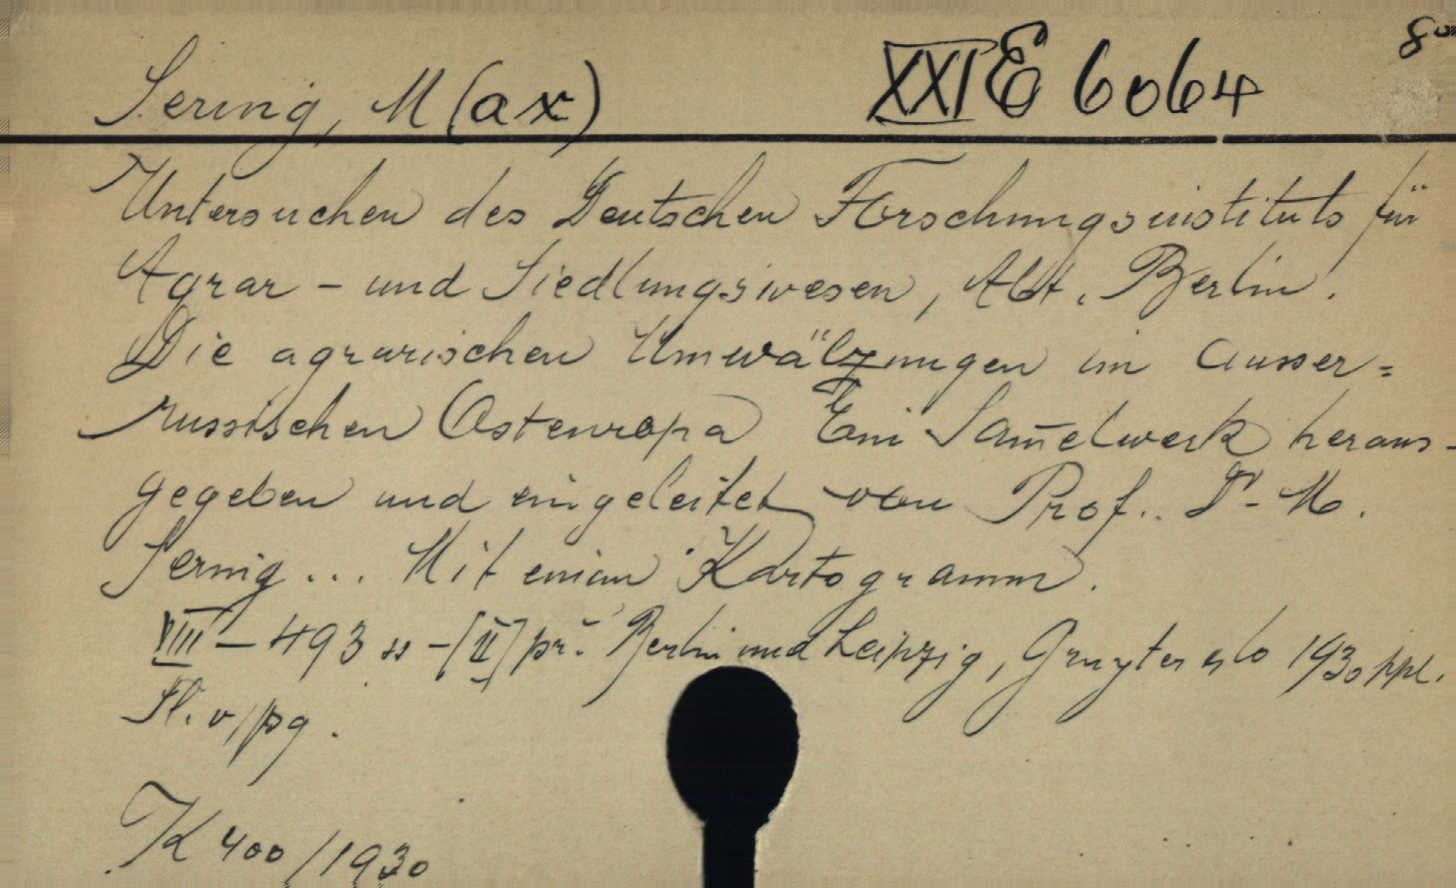 Sering, M(ax) XXI E 6064 8°
Untersuchen des Deutschen Forschungsinstituts für
Agrar - und Siedlungswesen, Abt. Berlin.
Die agrarischen Umwälzungen im ausser=
russischen Osteuropa Ein Sam̄elwerk heraus-
gegeben und eingeleitet von Prof. Dr M.
Sering ... Mit einem Kartogramm.
VIII - 493 ss - [II] pr. Berlin und Leipzig, Gruyter & Co 1930 ppl.
Pl. v/pg.
K 400/1930